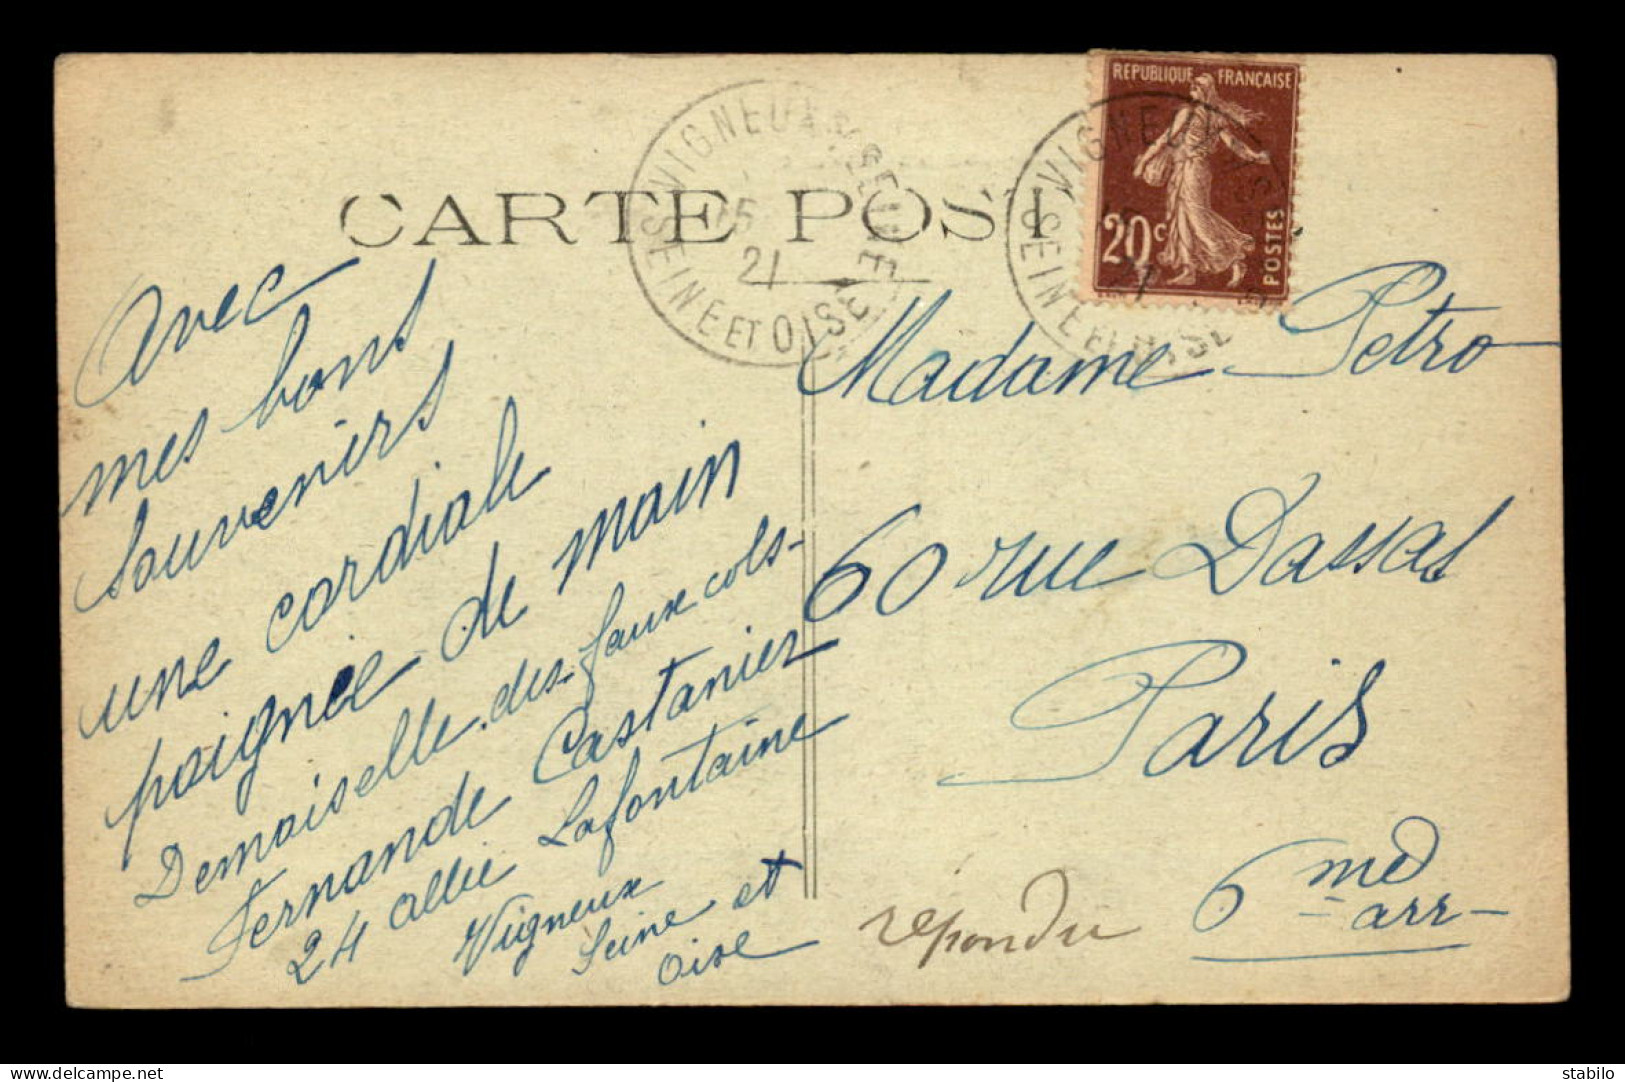 CARTE POST
REPUBLIQUE FRANÇAISE
20c
POSTES
VIGNEUX S SEINE
15
21
SEINE ET OISE
Avec
mes bons
souvenirs
une cordiale
poignée de main
Demoiselle des faux cols-
Fernande Castanier
24 allée Lafontaine
Vigneux
Seine et
Oise
Madame Petro
60 rue Dassas
Paris
6me arr-
répondu
delcampe.net
stabilo